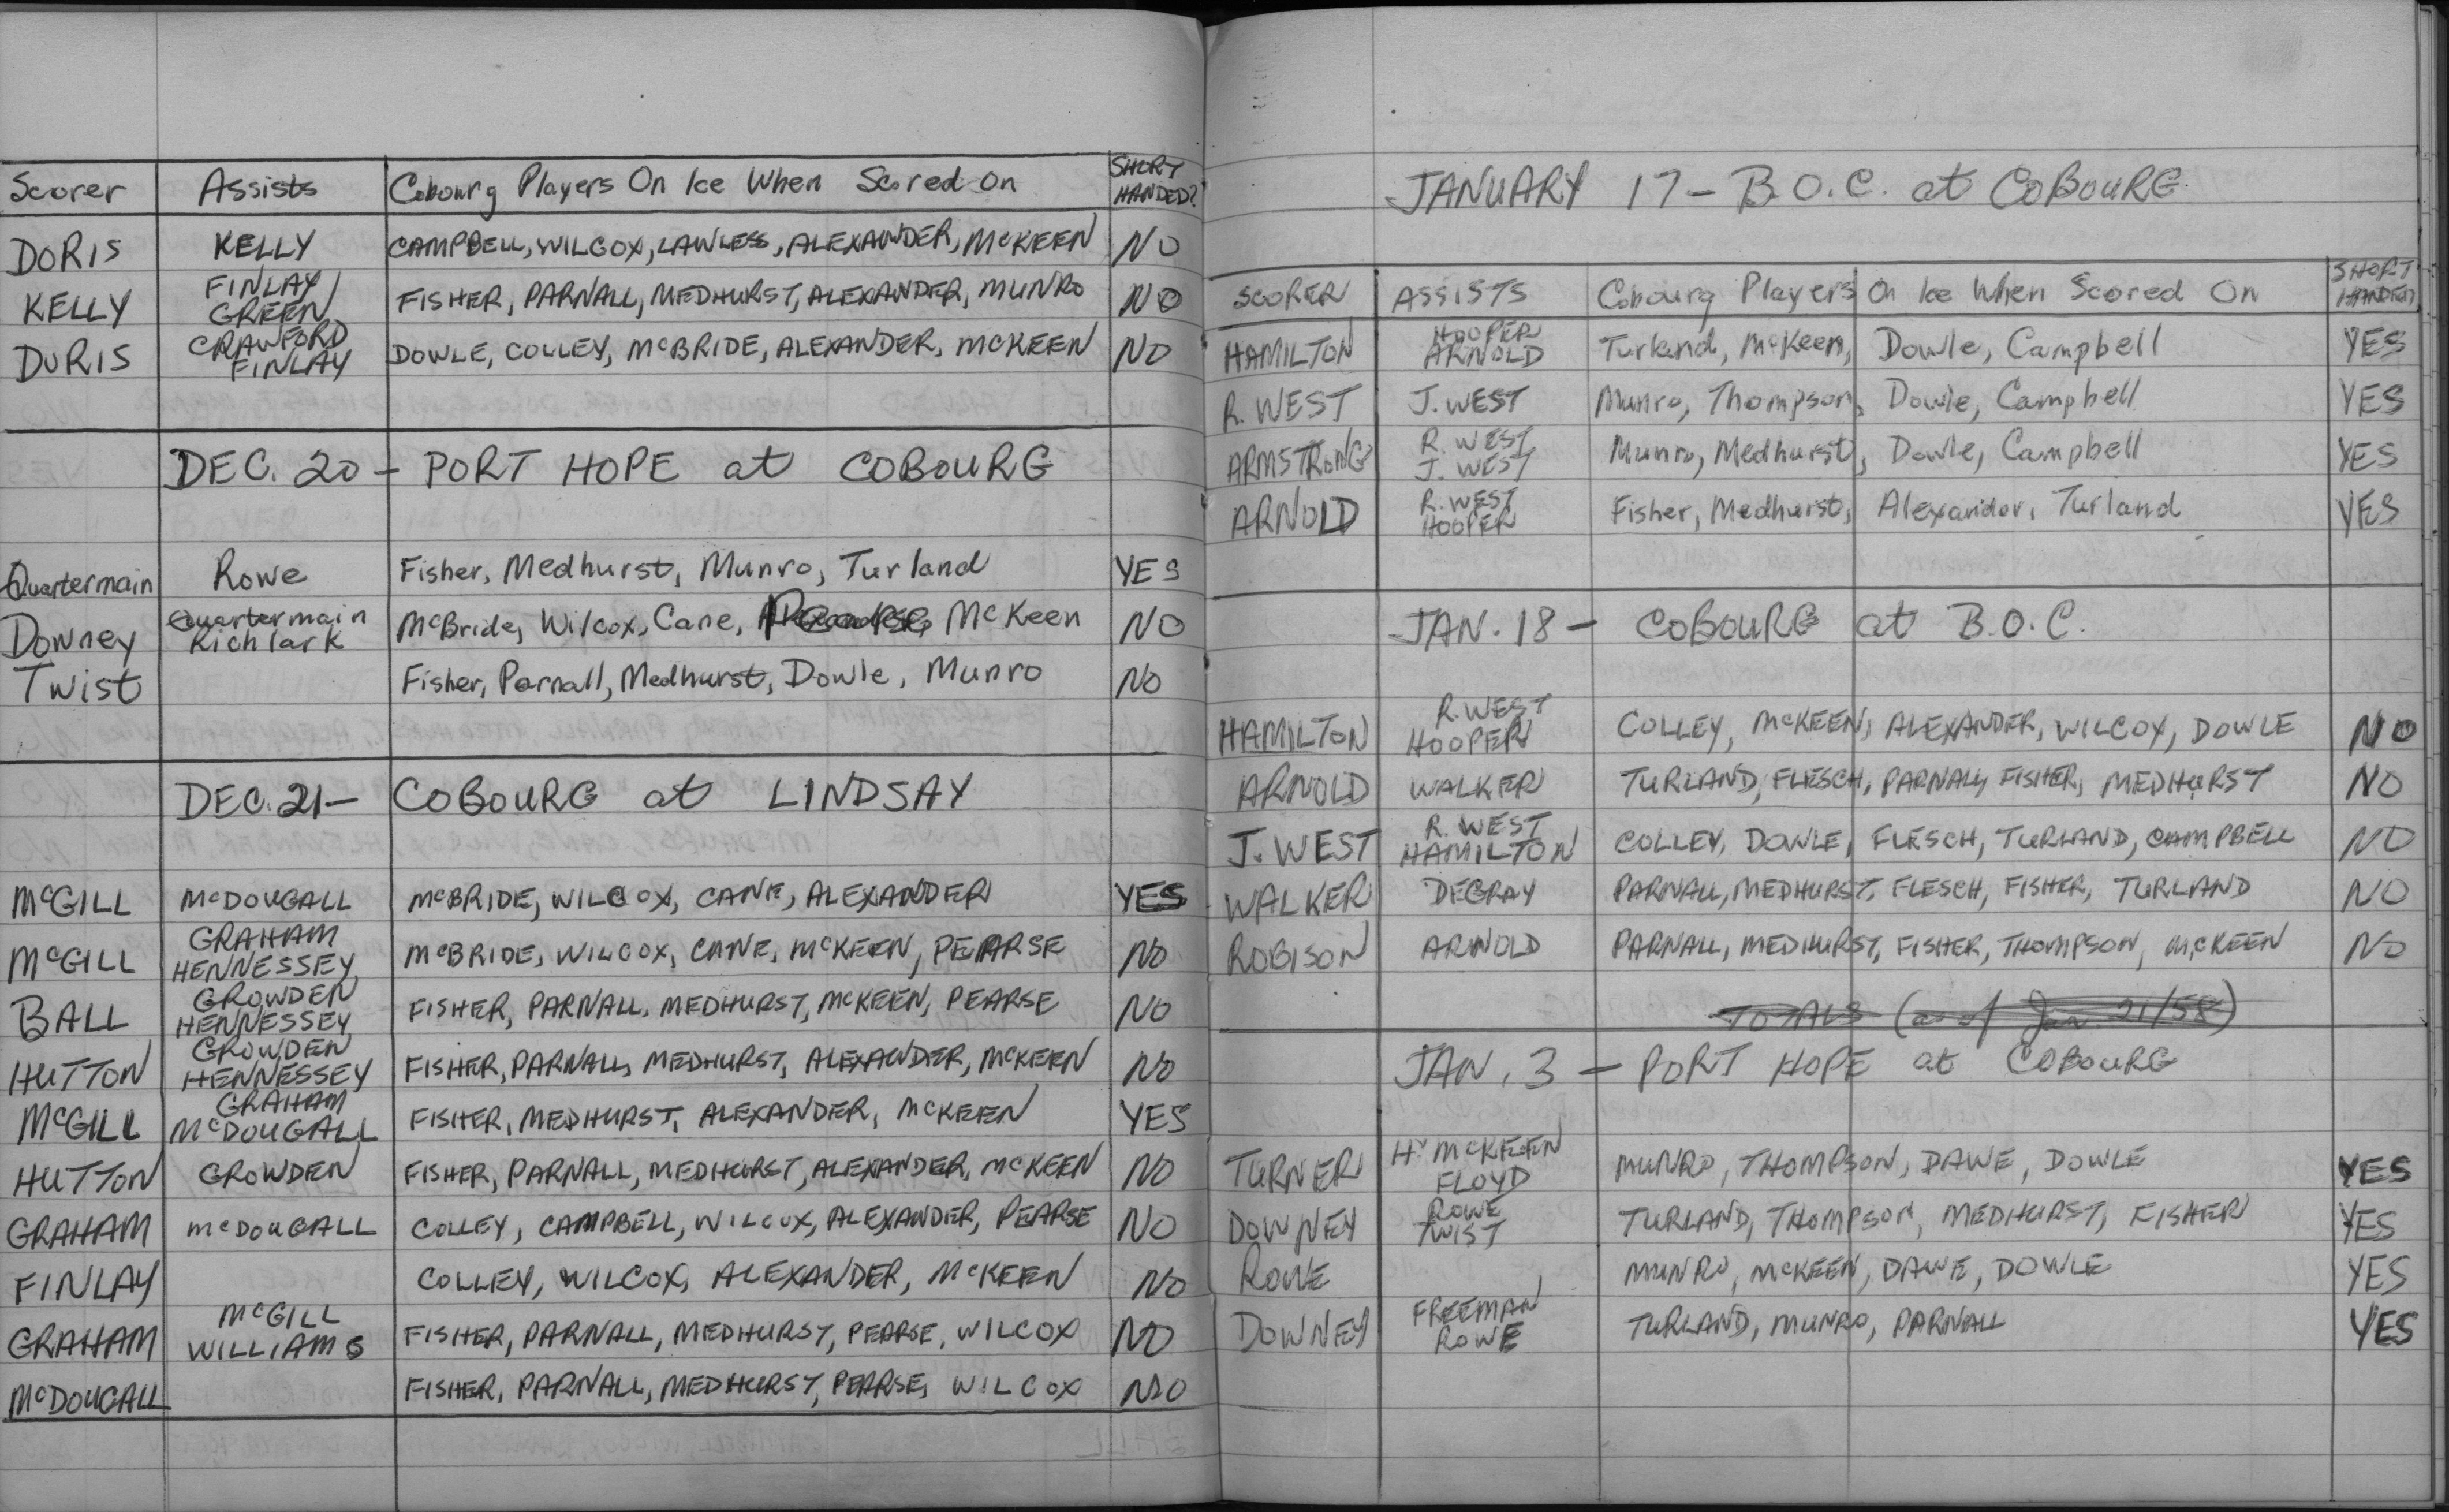 Scorer Assists Cobourg Players On Ice When Scored On SHORT HANDED?
DORIS KELLY CAMPBELL, WILCOX, LAWLESS, ALEXANDER, McKEEN NO
KELLY FINLAY GREEN FISHER, PARNALL, MEDHURST, ALEXANDER, MUNRO NO
DORIS CRAWFORD FINLAY DOWLE, COLLEY, McBRIDE, ALEXANDER, McKEEN NO
DEC. 20 - PORT HOPE at COBOURG
Quartermain Rowe Fisher, Medhurst, Munro, Turland YES
Downey Quartermain Richlark McBride, Wilcox, Cane, McKeen NO
Twist Fisher, Parnall, Medhurst, Dowle, Munro NO
DEC. 21 - COBOURG at LINDSAY
McGILL McDOUGALL McBRIDE, WILCOX, CANE, ALEXANDER YES
McGILL GRAHAM HENNESSEY McBRIDE, WILCOX, CANE, McKEEN, PEARSE NO
BALL GROWDEN HENNESSEY FISHER, PARNALL, MEDHURST, McKEEN, PEARSE NO
HUTTON GROWDEN HENNESSEY FISHER, PARNALL, MEDHURST, ALEXANDER, McKEEN NO
McGILL GRAHAM McDOUGALL FISHER, MEDHURST, ALEXANDER, McKEEN YES
HUTTON GROWDEN FISHER, PARNALL, MEDHURST, ALEXANDER, McKEEN NO
GRAHAM McDOUGALL COLLEY, CAMPBELL, WILCOX, ALEXANDER, PEARSE NO
FINLAY COLLEY, WILCOX, ALEXANDER, McKEEN NO
GRAHAM McGILL WILLIAMS FISHER, PARNALL, MEDHURST, PEARSE, WILCOX NO
McDOUGALL FISHER, PARNALL, MEDHURST, PEARSE, WILCOX NO
JANUARY 17 - B.O.C. at COBOURG
SCORER ASSISTS Cobourg Players On Ice When Scored On SHORT HANDED
HAMILTON HOOPER ARNOLD Turland, McKeen, Dowle, Campbell YES
R. WEST J. WEST Munro, Thompson, Dowle, Campbell YES
ARMSTRONG R. WEST J. WEST Munro, Medhurst, Dowle, Campbell YES
ARNOLD R. WEST HOOPER Fisher, Medhurst, Alexander, Turland YES
JAN. 18 - COBOURG at B.O.C.
HAMILTON R. WEST HOOPER COLLEY, McKEEN, ALEXANDER, WILCOX, DOWLE NO
ARNOLD WALKER TURLAND, FLESCH, PARNALL, FISHER, MEDHURST NO
J. WEST R. WEST HAMILTON COLLEY, DOWLE, FLESCH, TURLAND, CAMPBELL NO
WALKER DEGRAY PARNALL, MEDHURST, FLESCH, FISHER, TURLAND NO
ROBISON ARNOLD PARNALL, MEDHURST, FISHER, THOMPSON, McKEEN NO
TOTALS (as of Jan. 21/58)
JAN. 3 - PORT HOPE at COBOURG
TURNER Hy McKEEN FLOYD MUNRO, THOMPSON, DAWE, DOWLE YES
DOWNEY ROWE TWIST TURLAND, THOMPSON, MEDHURST, FISHER YES
ROWE MUNRO, McKEEN, DAWE, DOWLE YES
DOWNEY FREEMAN ROWE TURLAND, MUNRO, PARNALL YES